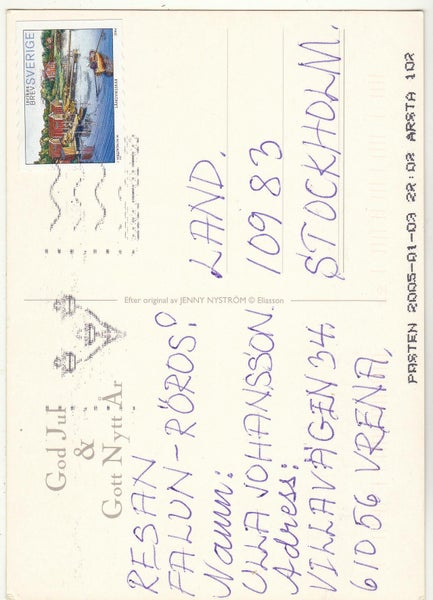 God Jul
&
Gott Nytt År
RESAN
FALUN-RÖROS?
Namn:
ULLA JOHANSSON.
Adress:
VILLAVÄGEN 34.
61056 VRENA,
Efter original av JENNY NYSTRÖM © Eliasson
BREV SVERIGE
LAND.
10983
STOCKHOLM.
PASTEN 2005-01-03 22:02 ARSTA 102